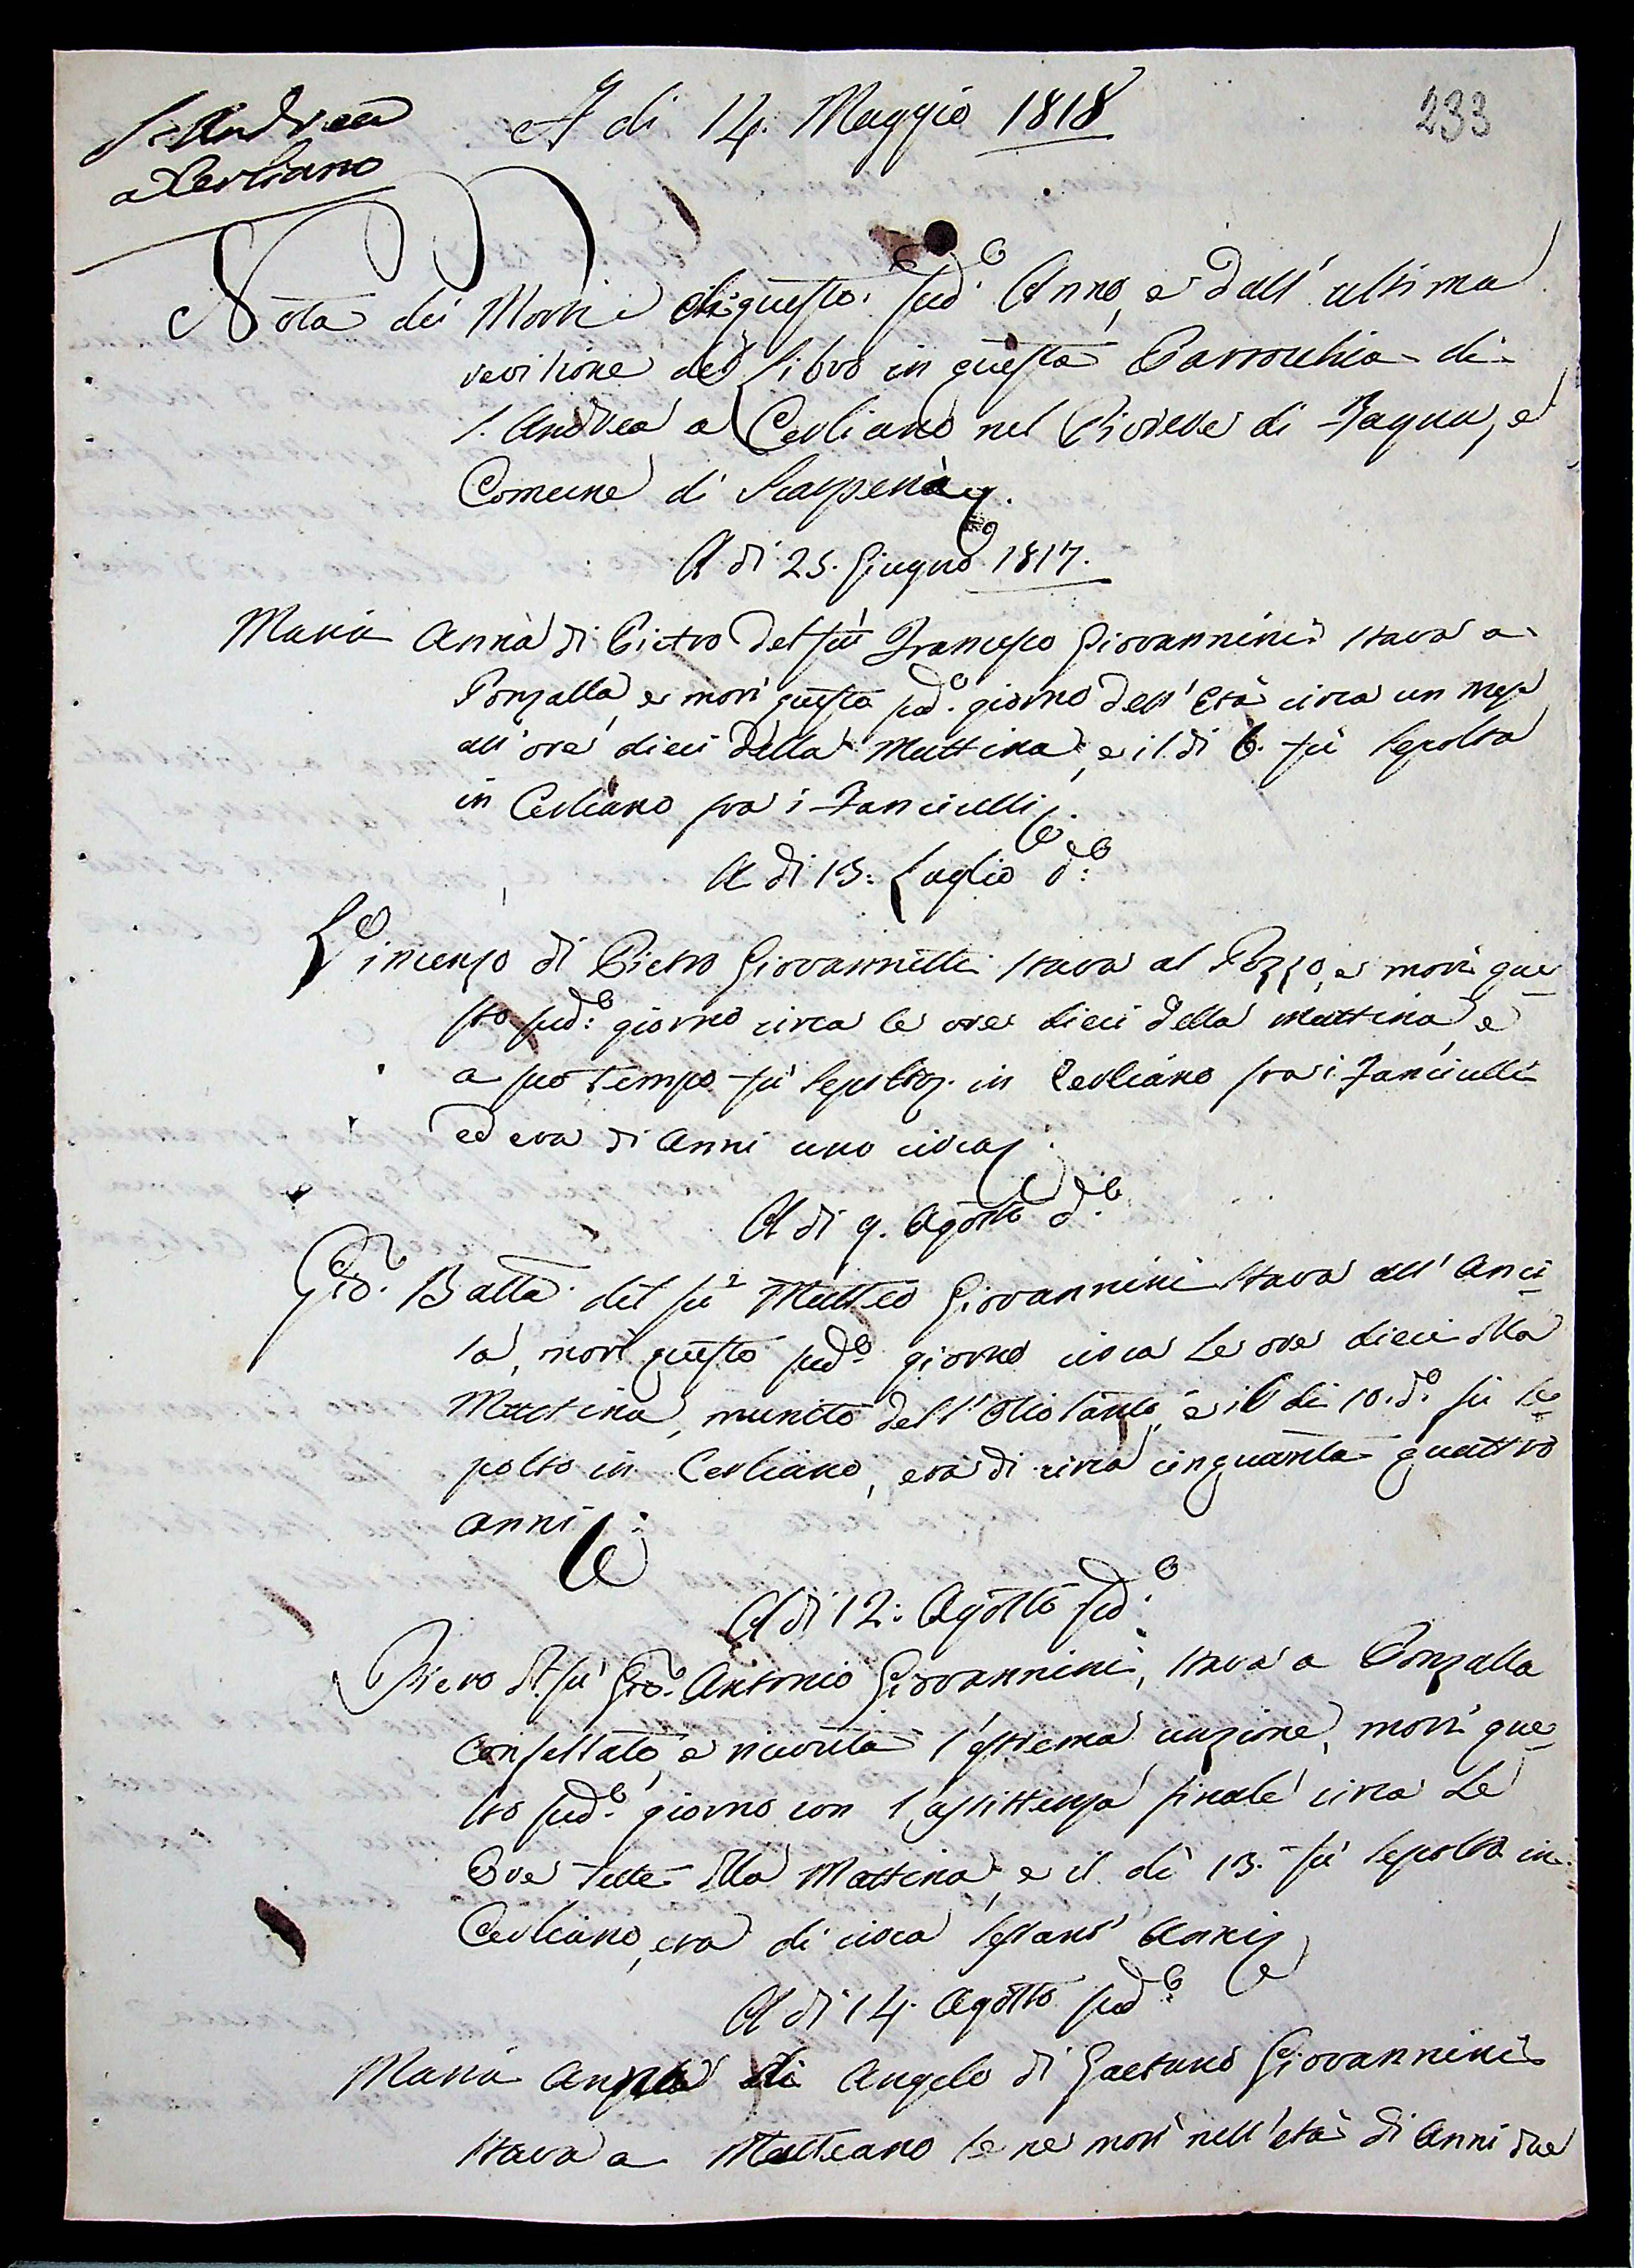 S. Andrea
a Cerliano
A di 14. Maggio 1818
233
Nota dei Morti di questo sud.o Anno, e dall' ultima
revisione del Libro in questa Parrochia di
S. Andrea a Cerliano nel Piviere di Fagna, e
Comune di Scarperia.
A di 25. Giugno 1817.
Maria Anna di Pietro del fù Francesco Giovannini stava a
Ponzalla, e morì questo sud.o giorno dell' età circa un mese
all' ore dieci della Mattina, e il di 6. fù sepolta
in Cerliano fra i Fanciulli.
A di 13. Luglio d.o
Vincenzo di Pietro Giovannetti stava al Pozzo, e morì que-
sto sud.o giorno circa le ore dieci della mattina e
a suo tempo fù sepolto in Cerliano fra i Fanciulli
ed era di Anni uno circa.
A di 9. Agosto d.o
Gio. Batta. del fù Matteo Giovannini stava all' Anci-
sa, morì questo sud.o giorno circa le ore dieci della
Mattina, munito dell' Olio Santo, e il di 10. d.o fù se-
polto in Cerliano, era di circa cinquanta quattro
anni.
A di 12. Agosto sud.o
Piero del fù Gio. Antonio Giovannini, stava a Ponzalla
Confessato, e ricevuta l'estrema unzione, morì que-
sto sud.o giorno con l'assistenza finale circa le
Ore sette della Mattina, e il dì 13. fù sepolto in
Cerliano, era di circa sessant' Anni.
A di 14. Agosto sud.o
Maria Anna di Angelo di Gaetano Giovannini
stava a Matteano se ne morì nell' età di Anni due